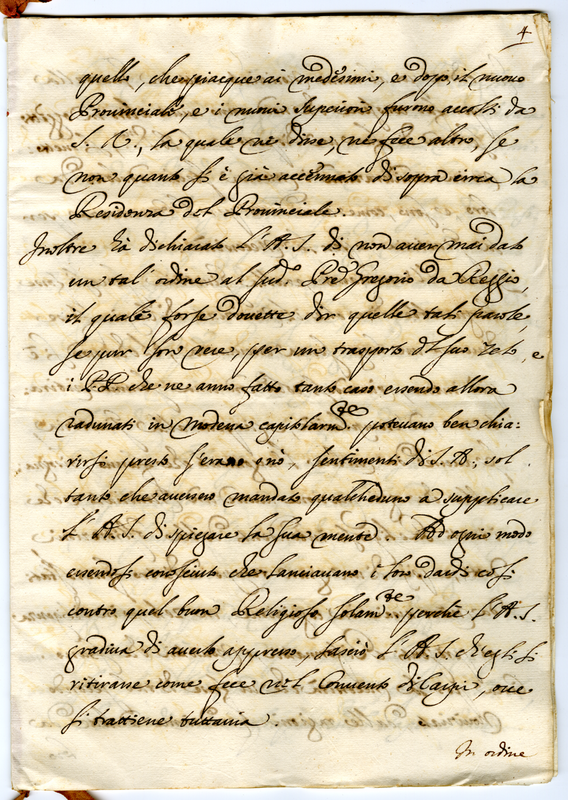 4
quello, che piacque ai medesimi, e dopo il nuovo
Provinciale, e i nuovi Superiori furono accolti da
S. A., la quale nè disse nè fece altro, se
non quanto si è già accennato di sopra circa la
Residenza del Provinciale.
Inoltre hà dichiarato l'A. S. di non aver mai dato
un tal' ordine al sud.º Pre Gregorio da Reggio,
il quale forse dovette dir quelle tali parole,
se pur son vere, per un trasporto del suo zelo, e
i PP. che ne anno fatto tanto caso essendo allora
radunati in Modena capitolarmte potevano ben chia:
rirsi presto s'erano, ò nò, sentimenti di S. A., sol
tanto che avessero mandato qualcheduno a supplicare
l'A. S. di spiegare la sua mente. Ad ogni modo
essendosi conosciuto che lanciavano i loro dardi così
contro quel buon Religioso solamte perchè l'A. S.
gradiva di averlo appresso, lasciò l'A. S. ch'egli si
ritirasse come fece nel Convento di Carpi, ove
si trattiene tuttavia.
In ordine